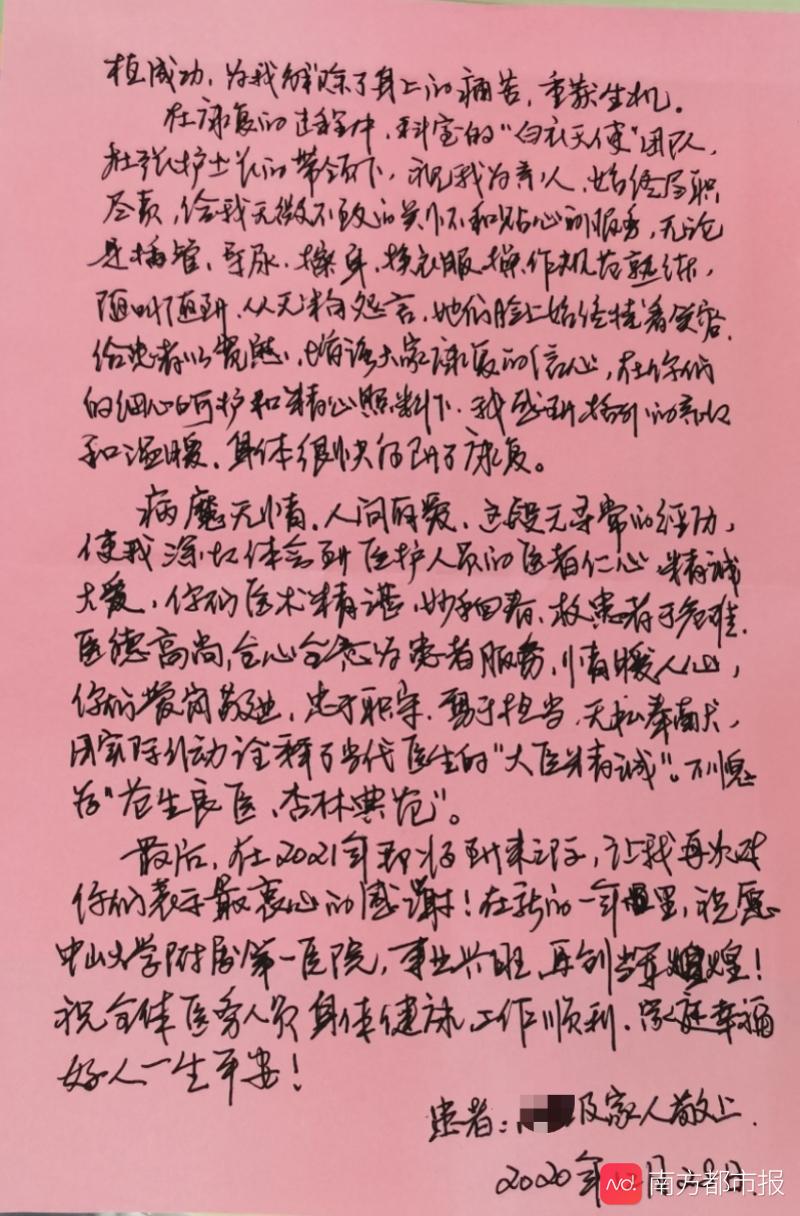 植成功，为我解除了身上的痛苦，重获生机。
在康复的过程中，科室的“白衣天使”团队，
在张护士长的带领下，视我为亲人，始终尽职
尽责，给我无微不致的关怀和贴心的服务，无论
是插管、导尿、擦身、换衣服操作规范熟练，
随叫随到，从无半句怨言，她们脸上始终挂着笑容，
给患者以宽慰，增强大家康复的信心，在你们
的细心呵护和精心照料下，我感到格外的亲切
和温暖，身体很快的到了康复。
病魔无情，人间有爱，这段无寻常的经历，
使我深切体会到医护人员的医者仁心、精诚
大爱，你们医术精湛，妙手回春，救患者于危难，
医德高尚，全心全意为患者服务，情暖人心，
你们爱岗敬业，忠于职守，勇于担当，无私奉献，
用实际行动诠释了当代医生的“大医精诚”。不愧
为“苍生良医、杏林典范”。
最后，在2021年即将到来之际，让我再次对
你们表示最衷心的感谢！在新的一年里，祝愿
中山大学附属第一医院，事业兴旺，再创辉煌！
祝全体医务人员身体健康，工作顺利，家庭幸福
好人一生平安！
患者：及家人敬上.
2020年 月22日
南方都市报